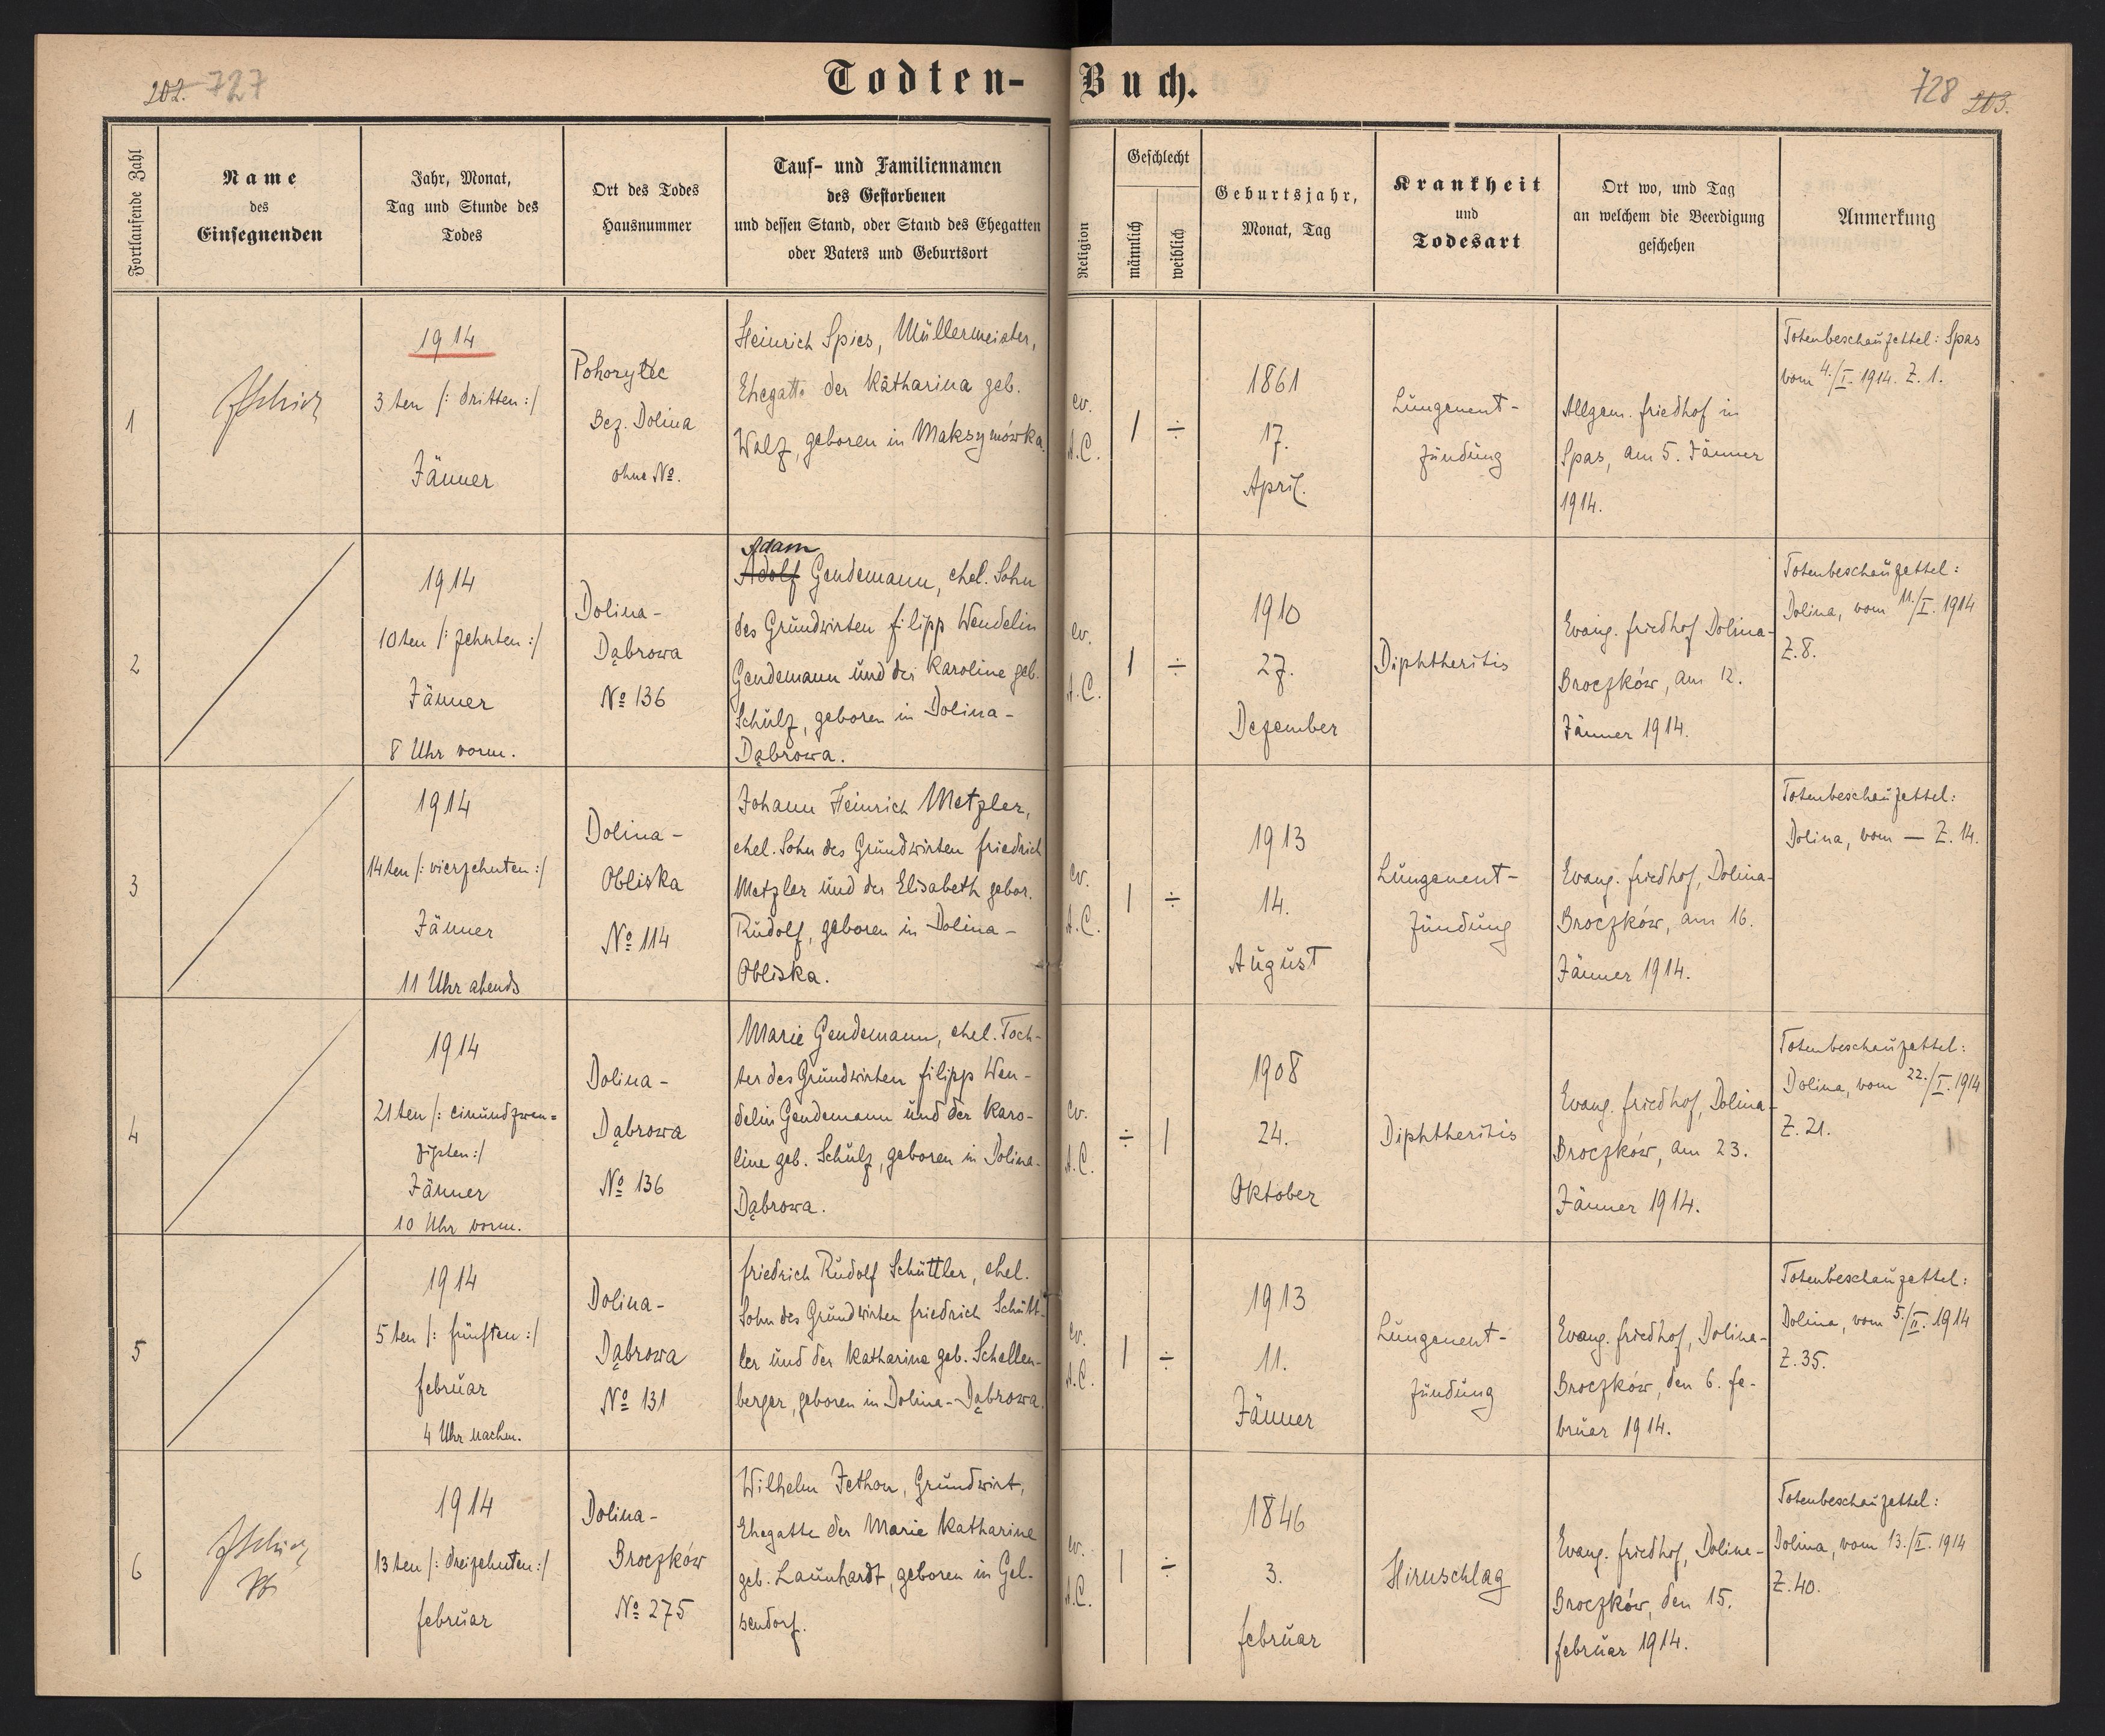 202. 727
Todten-Buch.
728 203.
Fortlaufende Zahl
Name
des
Einsegnenden
Jahr, Monat,
Tag und Stunde des
Todes
Ort des Todes
Hausnummer
Tauf- und Familiennamen
des Gestorbenen
und dessen Stand, oder Stand des Ehegatten
oder Vaters und Geburtsort
Religion
Geschlecht
männlich
weiblich
Geburtsjahr,
Monat, Tag
Krankheit
und
Todesart
Ort wo, und Tag
an welchem die Beerdigung
geschehen
Anmerkung
1
1914
3ten /: dritten :/
Jänner
Pohorylec
Bez. Dolina
ohne No.
Heinrich Spies, Müllermeister,
Ehegatte der Katharina geb.
Walz, geboren in Maksymówka.
ev.
A.C.
1
÷
1861
17.
April.
Lungenent-
zündung
Allgem. Friedhof in
Spas, am 5. Jänner
1914.
Totenbeschauzettel: Spas
vom 4./I. 1914. Z. 1.
2
1914
10ten /: zehnten :/
Jänner
8 Uhr vorm.
Dolina-
Dąbrowa
No 136
Adam
Adolf Gendemann, ehel. Sohn
des Grundwirten Filipp Wendelin
Gendemann und der Karoline geb.
Schulz, geboren in Dolina-
Dąbrowa.
ev.
A.C.
1
÷
1910
27.
Dezember
Diphtheritis
Evang. Friedhof Dolina-
Broczków, am 12.
Jänner 1914.
Totenbeschauzettel:
Dolina, vom 11./I. 1914
Z. 8.
3
1914
14ten /: vierzehnten :/
Jänner
11 Uhr abends
Dolina-
Obliska
No 114
Johann Heinrich Metzler,
ehel. Sohn des Grundwirten Friedrich
Metzler und der Elisabeth gebor.
Rudolf, geboren in Dolina-
Obliska.
ev.
A.C.
1
÷
1913
14.
August
Lungenent-
zündung
Evang. Friedhof, Dolina-
Broczków, am 16.
Jänner 1914.
Totenbeschauzettel:
Dolina, vom — Z. 14.
4
1914
21ten /: einundzwan=
zigsten :/
Jänner
10 Uhr vorm.
Dolina-
Dąbrowa
No 136
Marie Gendemann, ehel. Toch-
ter des Grundwirten Filipp Wen-
delin Gendemann und der Karo-
line geb. Schulz, geboren in Dolina-
Dąbrowa.
ev.
A.C.
÷
1
1908
24.
Oktober
Diphtheritis
Evang. Friedhof, Dolina-
Broczków, am 23.
Jänner 1914.
Totenbeschauzettel:
Dolina, vom 22./I. 1914
Z. 21.
5
1914
5ten /: fünften :/
Februar
4 Uhr nachm.
Dolina-
Dąbrowa
No 131
Friedrich Rudolf Schüttler, ehel.
Sohn des Grundwirten Friedrich Schütt-
ler und der Katharina geb. Schellen-
berger, geboren in Dolina-Dąbrowa.
ev.
A.C.
1
÷
1913
11.
Jänner
Lungenent-
zündung
Evang. Friedhof, Dolina-
Broczków, den 6. Fe-
bruar 1914.
Totenbeschauzettel:
Dolina, vom 5./II. 1914
Z. 35.
6
1914
13ten /: dreizehnten :/
Februar
Dolina-
Broczków
No 275
Wilhelm Jethon, Grundwirt,
Ehegatte der Marie Katharine
geb. Launhardt, geboren in Gel-
sendorf.
ev.
A.C.
1
÷
1846
3.
Februar
Hirnschlag
Evang. Friedhof, Dolina-
Broczków, den 15.
Februar 1914.
Totenbeschauzettel:
Dolina, vom 13./II. 1914
Z. 40.